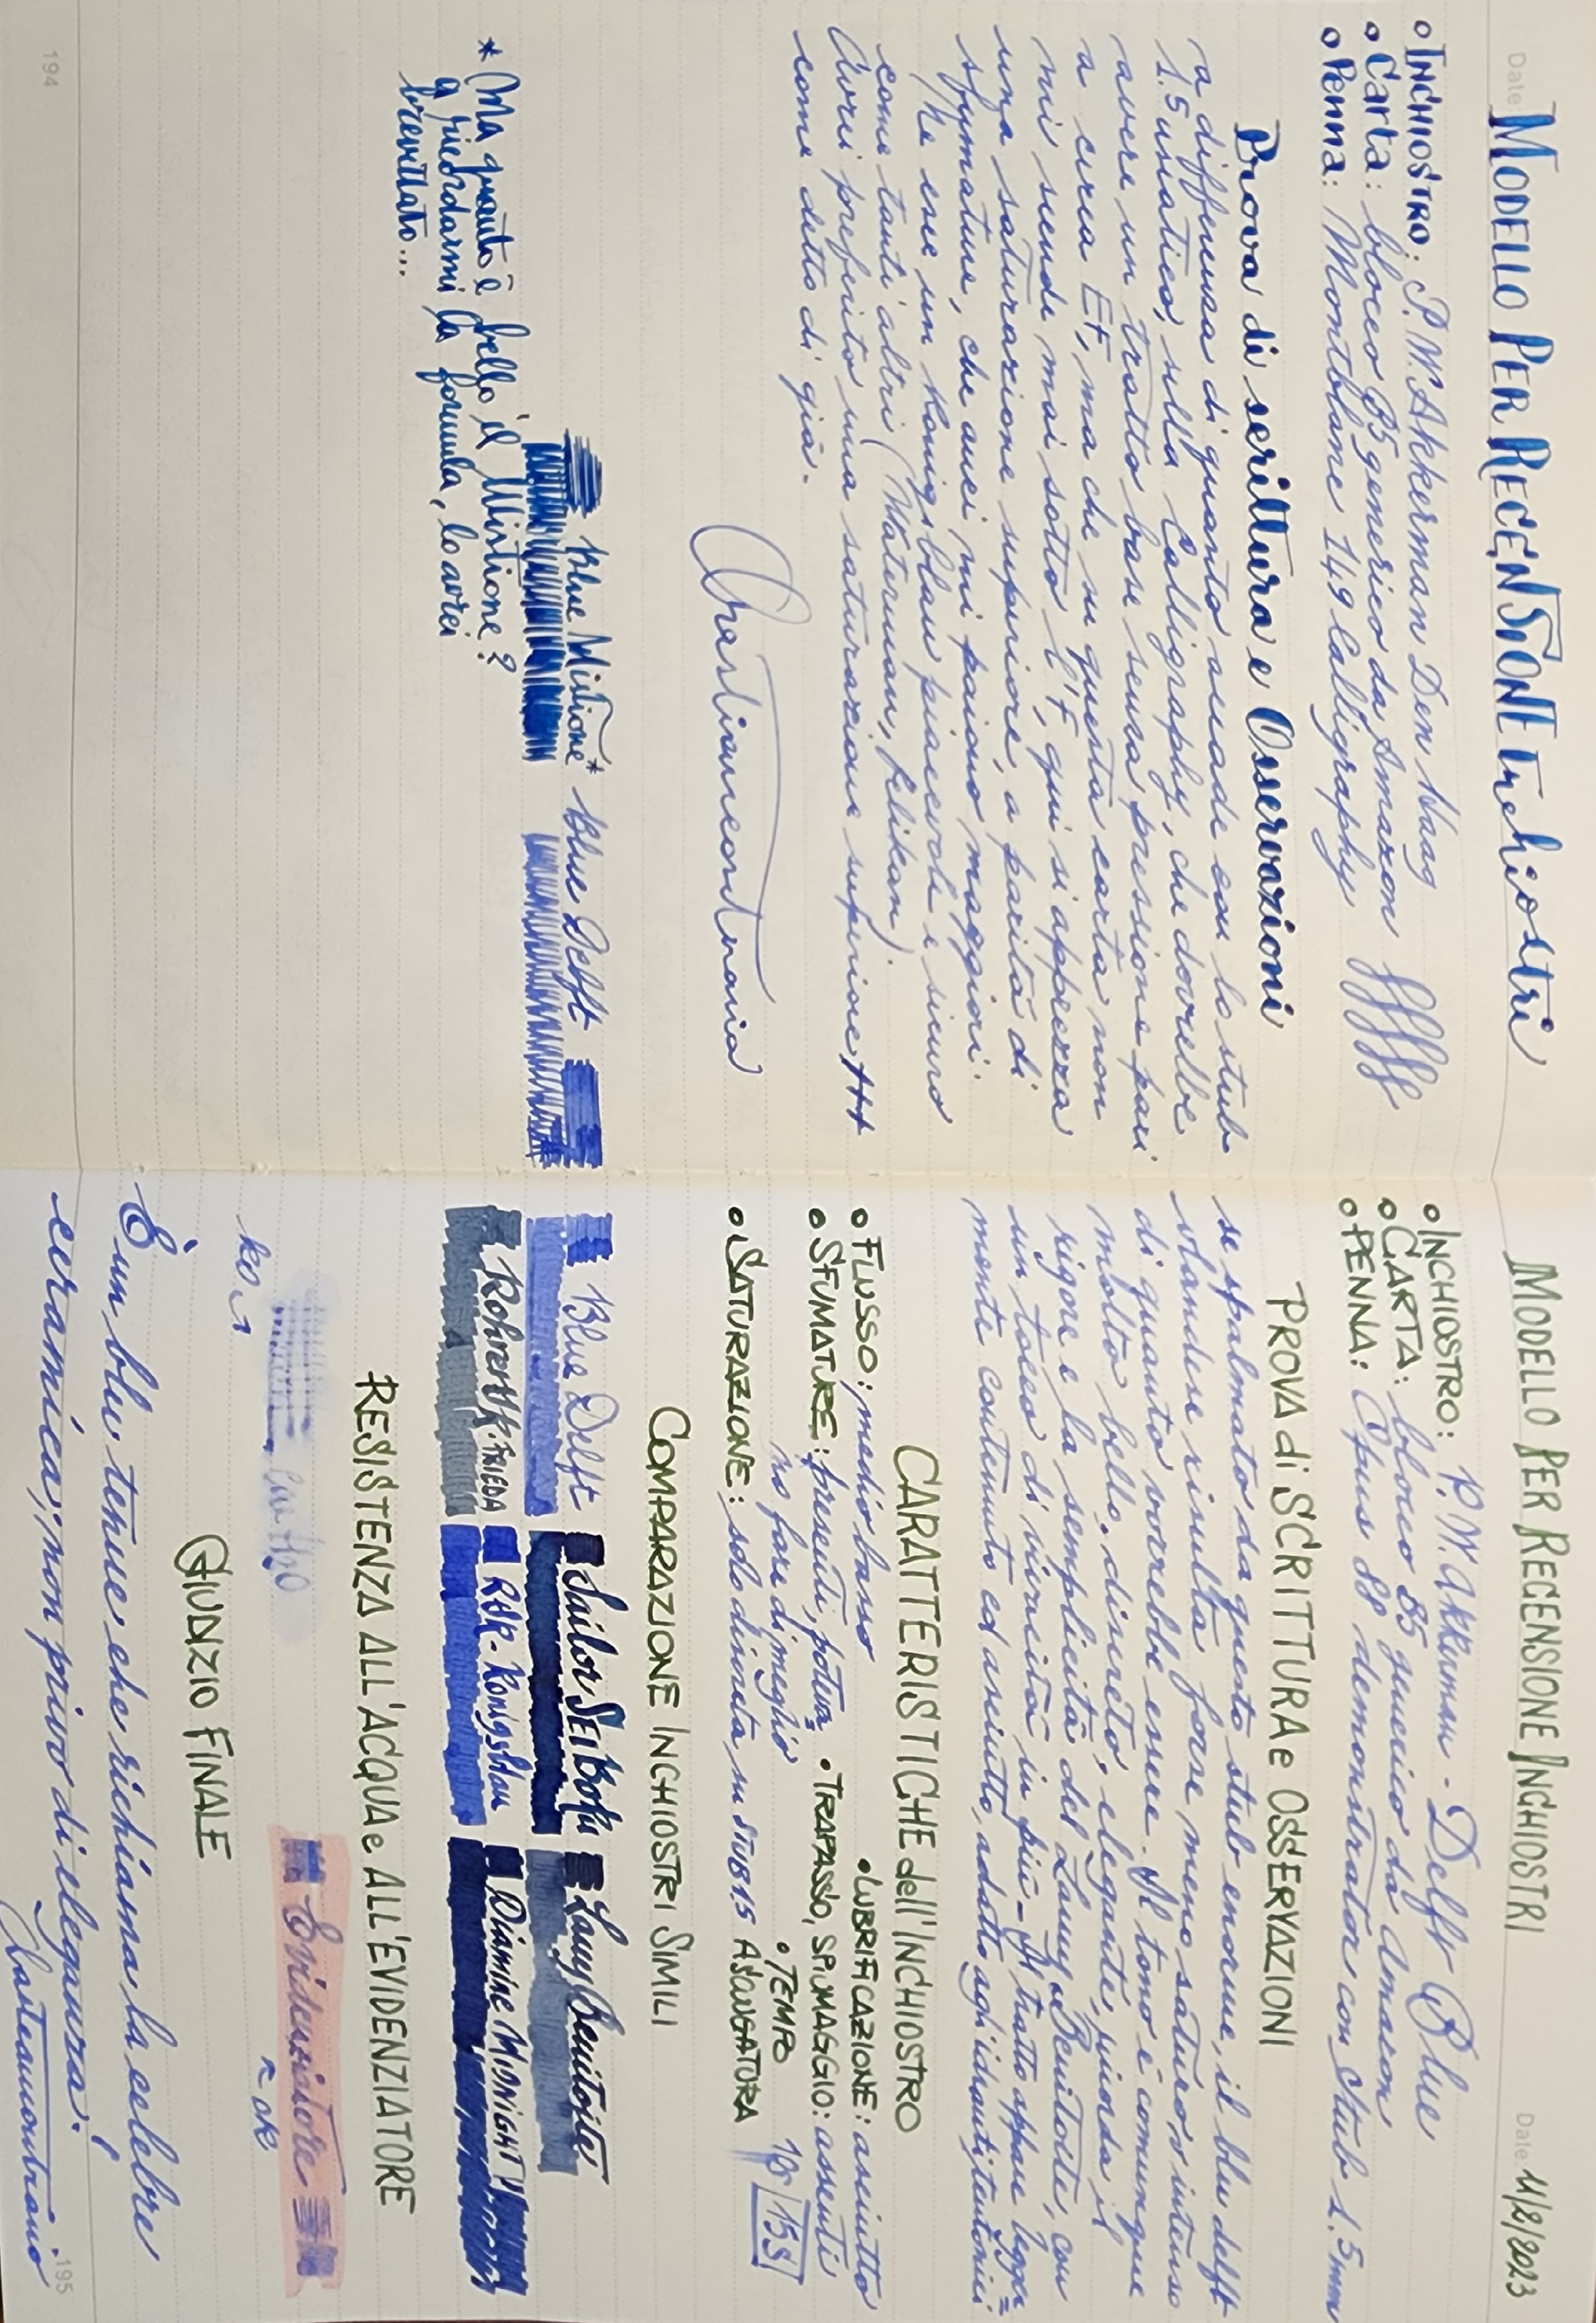 Date
MODELLO PER RECENSIONE Inchiostri
INCHIOSTRO: P.W. Akkerman Den Haag
Carta: blocco B5 generico da Amazon
Penna: Montblanc 149 Calligraphy
Prova di scrittura e Osservazioni
a differenza di quanto accade con lo stub
1.5 asiatico, nella Calligraphy, che dovrebbe
avere un tratto base senza pressione pari
a circa EF, ma che su questa carta non
mi scende mai sotto l'F, qui si apprezza
una saturazione superiore, a parità di
sfumature, che anzi mi paiono maggiori.
Me ene un Konigsblau piacevole e sicuro
come tanti altri (Waterman, Pelikan).
Avrei preferito una saturazione superiore
come detto di già.
Blue Mistione* Blue Delft
* Ma quanto è bello il Mistione?
a ricordarmi la formula, lo avrei
brevettato...
194
Date 11/2/2023
MODELLO PER RECENSIONE INCHIOSTRI
INCHIOSTRO: P.W. Akkerman - Delft Blue
CARTA: blocco B5 generico da Amazon
PENNA: Opus 88 demonstrator con stub 1.5mm
PROVA di SCRITTURA e OSSERVAZIONI
se spalmato da questo stub enorme, il blu delft
olandese risulta forse meno saturo e intenso
di quanto vorrebbe essere. Il tono è comunque
molto bello: discreto, elegante, ricorda il
rigore e la semplicità del Lamy Benitoite, con
un tocco di vivacità in più - Il tratto appare legger=
mente contenuto ed asciutto, adatto agli
CARATTERISTICHE dell'INCHIOSTRO
FLUSSO: medio basso
LUBRIFICAZIONE: asciutto
SFUMATURE: presenti, poteva
TRAPASSO, SPIUMAGGIO: assenti
no fare di meglio
TEMPO
SATURAZIONE: solo discreta su STUB 1.5
ASCIUGATURA
15s
COMPARAZIONE INCHIOSTRI SIMILI
Blue Delft
Sailor SEIBOKU
Lamy Benitoite
Rohrer&K. FRIEDA
R&K. Konigsblau
Diamine MIDNIGHT
RESISTENZA ALL'ACQUA e ALL'EVIDENZIATORE
Evidenziatore
ko
ok
GIUDIZIO FINALE
È un blu tenue che richiama la celebre
ceramica; non privo di eleganza.
195